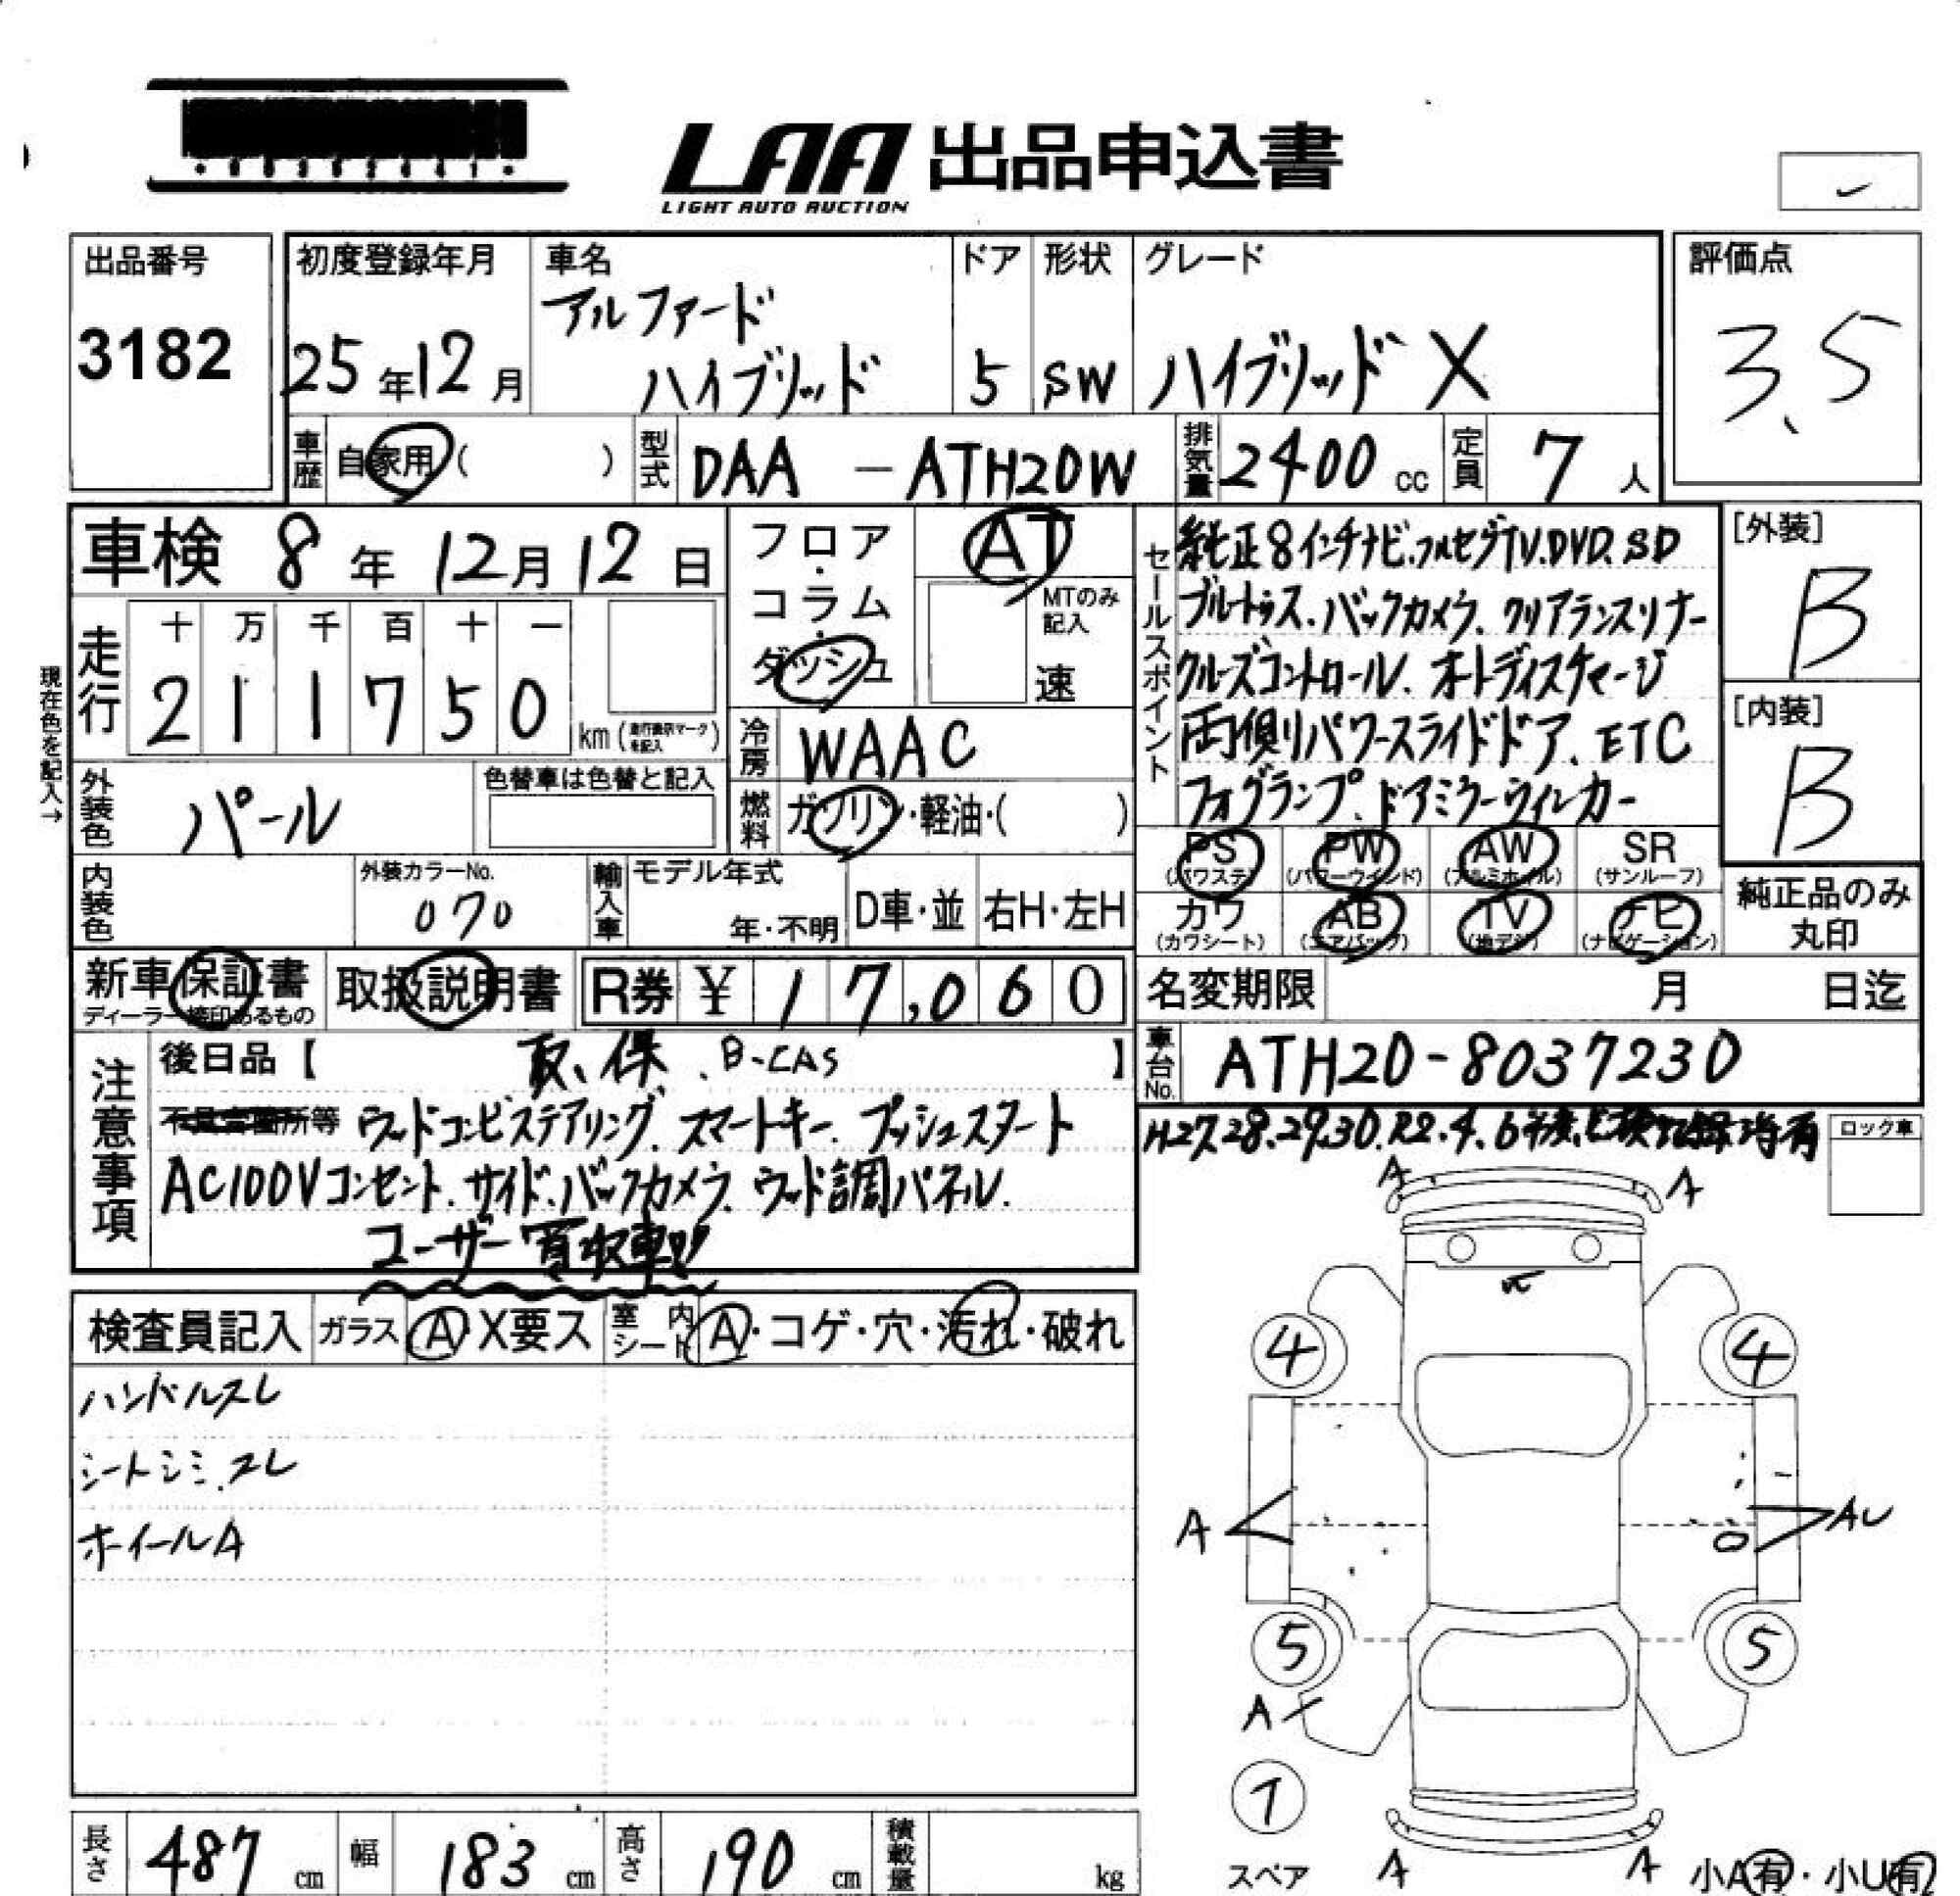 LAA 出品申込書
LIGHT AUTO AUCTION
出品番号
3182
初度登録年月
25年12月
車名
アルファード
ハイブリッド
ドア
5
形状
SW
グレード
ハイブリッド X
評価点
3.5
車歴
自家用( )
型式
DAA - ATH20W
排気量
2400 cc
定員
7 人
車検 8年12月12日
フロア・コラム・ダッシュ
AT
MTのみ記入
速
走行
十 万 千 百 十 一
2 1 1 7 5 0 km
現在色を記入→
外装色
パール
色替車は色替と記入
冷房
WAAC
燃料
ガソリン・軽油・( )
内装色
外装カラーNo.
070
輸入車
モデル年式
年・不明
D車・並
右H・左H
セールスポイント
純正8インチナビ.フルセグTV.DVD.SD
ブルートゥス.バックカメラ.クリアランスソナー
クルーズコントロール.オートディスチャージ
両側リパワースライドドア.ETC
フォグランプ.ドアミラーウィンカー
[外装]
B
[内装]
B
PS (パワステ)
PW (パワーウインド)
AW (アルミホイル)
SR (サンルーフ)
カワ (カワシート)
AB (エアバッグ)
TV (地デジ)
ナビ (ナビゲーション)
純正品のみ
丸印
新車保証書
ディーラー捺印あるもの
取扱説明書
R券 ¥ 17,060
名変期限 月 日迄
車台No.
ATH20-8037230
注意事項
後日品【 取、保、B-CAS 】
ウッドコンビステアリング.スマートキー.プッシュスタート
AC100Vコンセント.サイド.バックカメラ.ウッド調パネル.
ユーザー買取車!!
H27.28.29.30.R2.4.6
ロック車
検査員記入
ガラス A・X要ス
室内シート A・コゲ・穴・汚れ・破れ
ハンドルスレ
シートシミ.スレ
ホイールA
A A
4 4
A AU
5 5
A
スペア
A A
小A有・小U有
長さ 487 cm
幅 183 cm
高さ 190 cm
積載量 kg